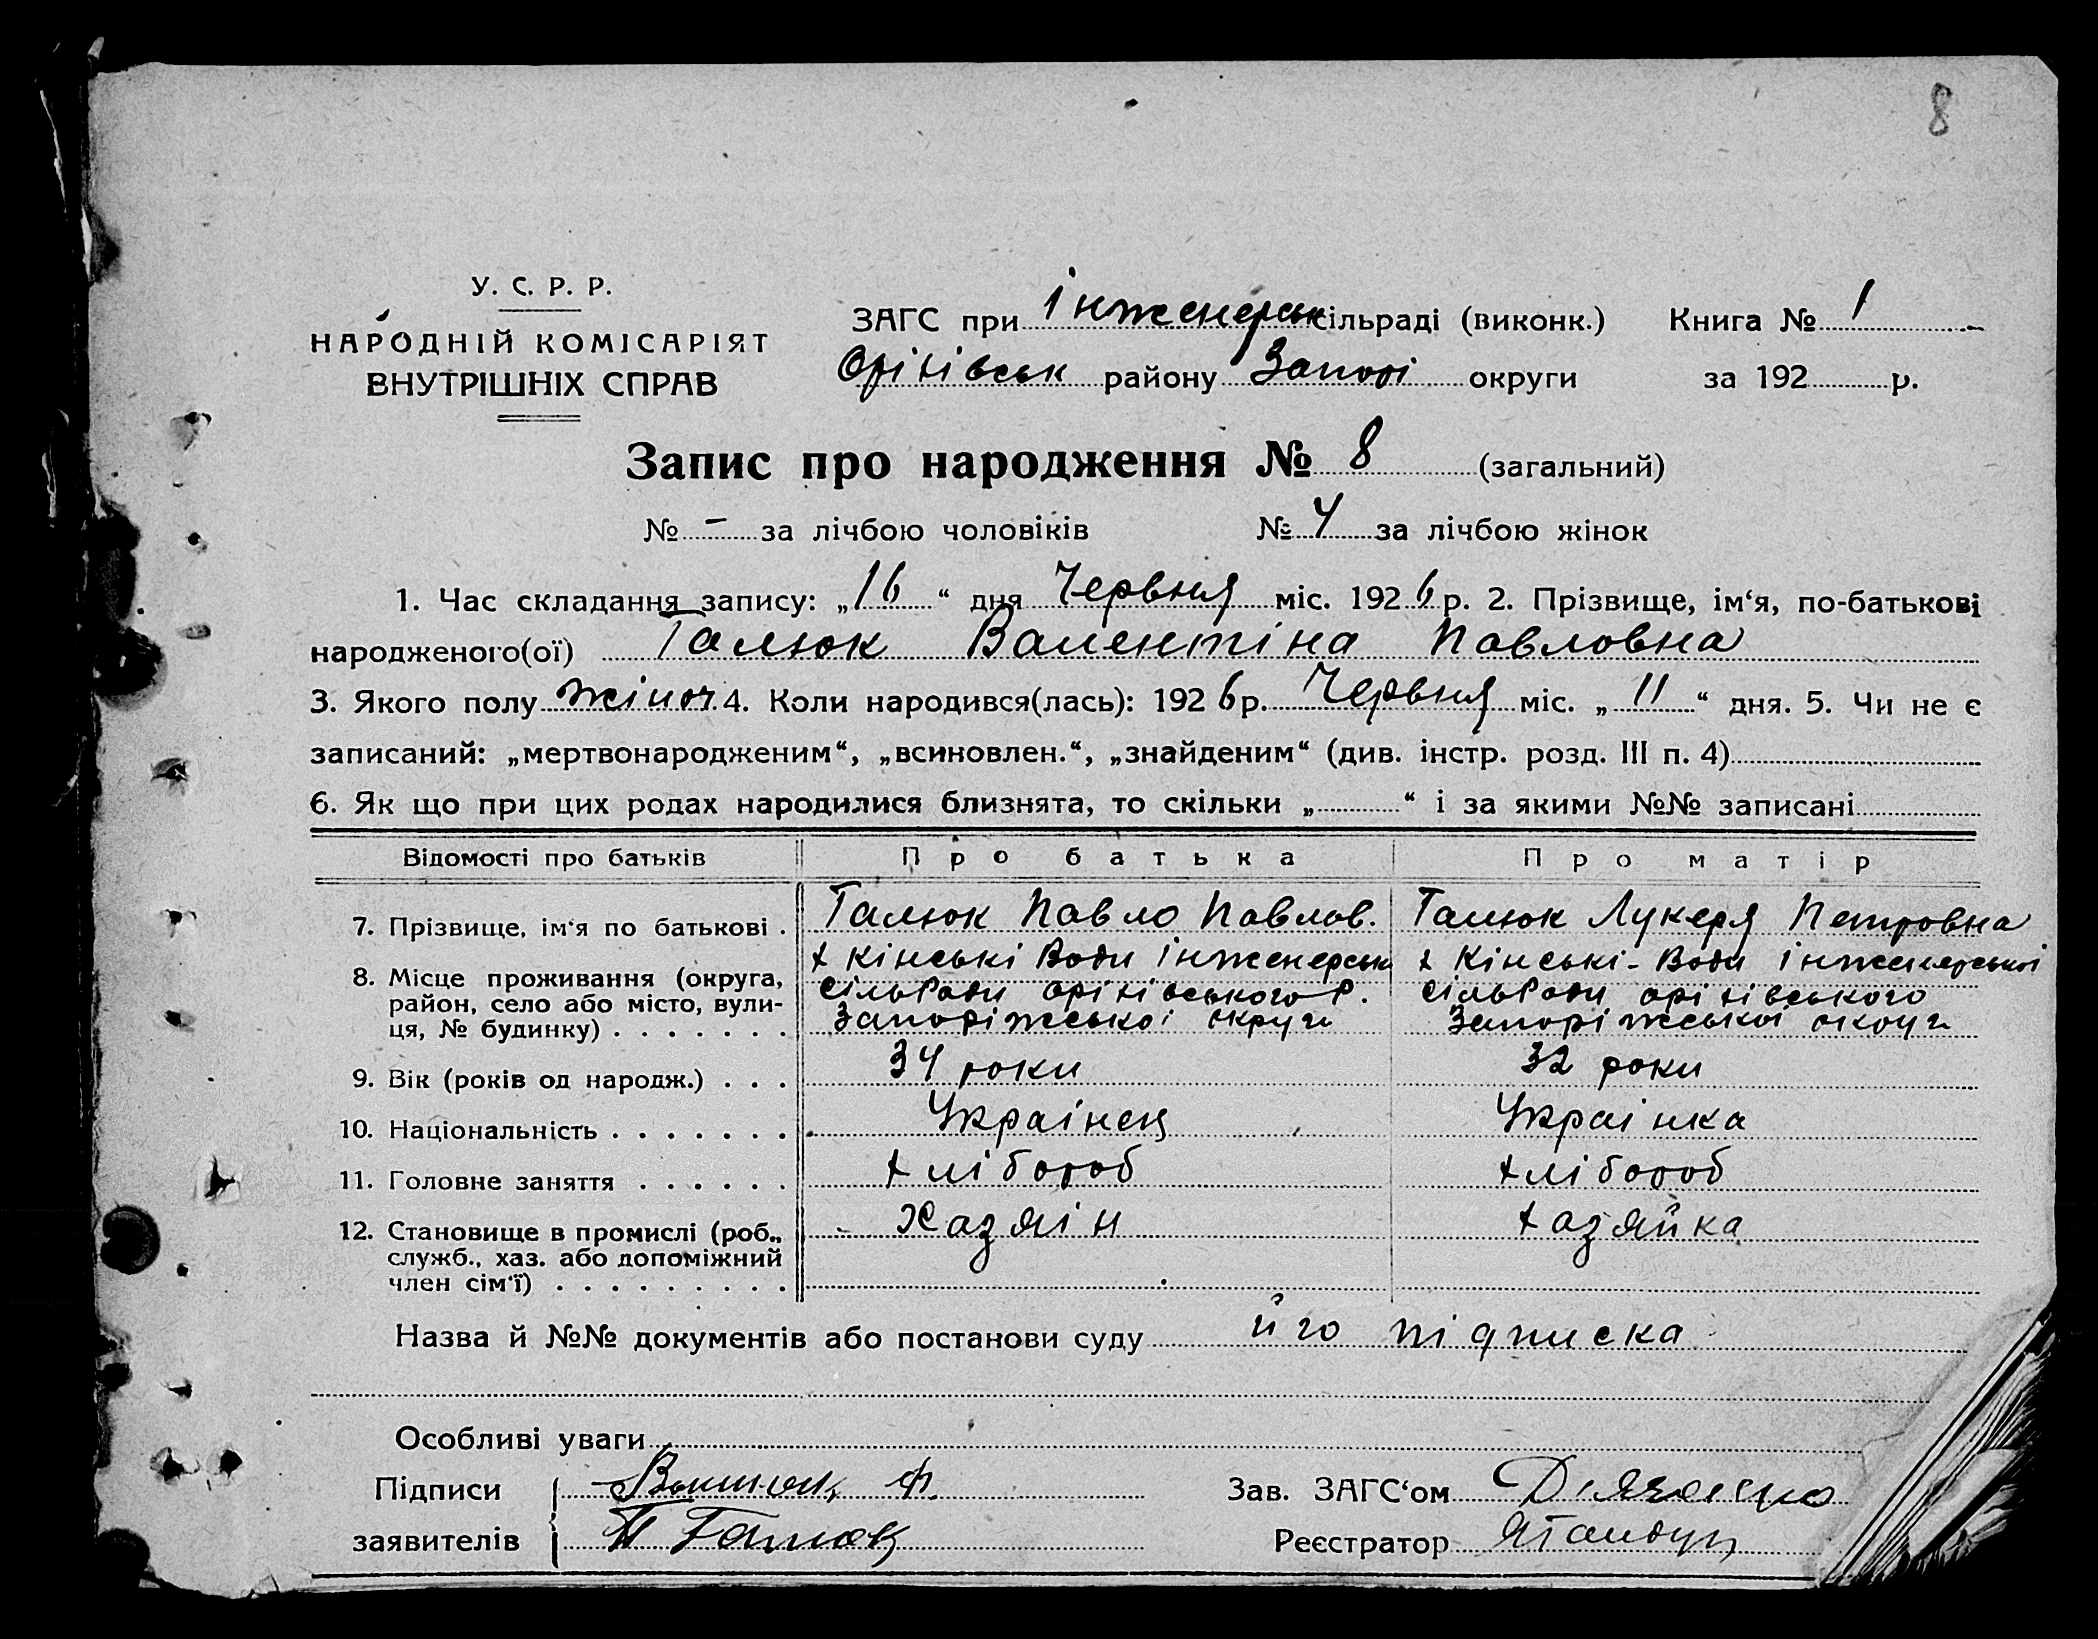 8
У. С. Р. Р.
НАРОДНІЙ КОМІСАРІЯТ
ВНУТРІШНІХ СПРАВ
ЗАГС при Інженерськ сільраді (виконк.) Книга № 1
Оріхівськ району Запорі округи за 192 р.
Запис про народження № 8 (загальний)
№ - за лічбою чоловіків № 4 за лічбою жінок
1. Час складання запису: „16“ дня Червня міс. 1926 р. 2. Прізвище, ім‘я, по-батькові
народженого(ої) Галюк Валентіна Павловна
3. Якого полу жіноч 4. Коли народився(лась): 1926 р. Червня міс. „11“ дня. 5. Чи не є
записаний: „мертвонародженим“, „всиновлен.“, „знайденим“ (див. інстр. розд. III п. 4)
6. Як що при цих родах народилися близнята, то скільки „ “ і за якими №№ записані
Відомості про батьків Про батька Про матір
7. Прізвище, ім‘я по батькові . Галюк Павло Павлов. Галюк Лукеря Петровна
8. Місце проживання (округа, район, село або місто, вулиця, № будинку) . . . . . . .
х Кінські Води Інженерськ
сільради оріхівського р.
Запоріжської округи
х Кінські-Води Інженерської
сільради оріхівського
Запоріжської округи
9. Вік (років од народж.) . . . 34 роки 32 роки
10. Національність . . . . . . . Українец Українка
11. Головне заняття . . . . . . хлібороб хлібороб
12. Становище в промислі (роб., служб., хаз. або допоміжний член сім‘ї) . . . . . . . . . Хазяїн хазяйка
Назва й №№ документів або постанови суду його підписка
Особливі уваги
Підписи
заявителів П Галюк
Зав. ЗАГС‘ом
Реєстратор